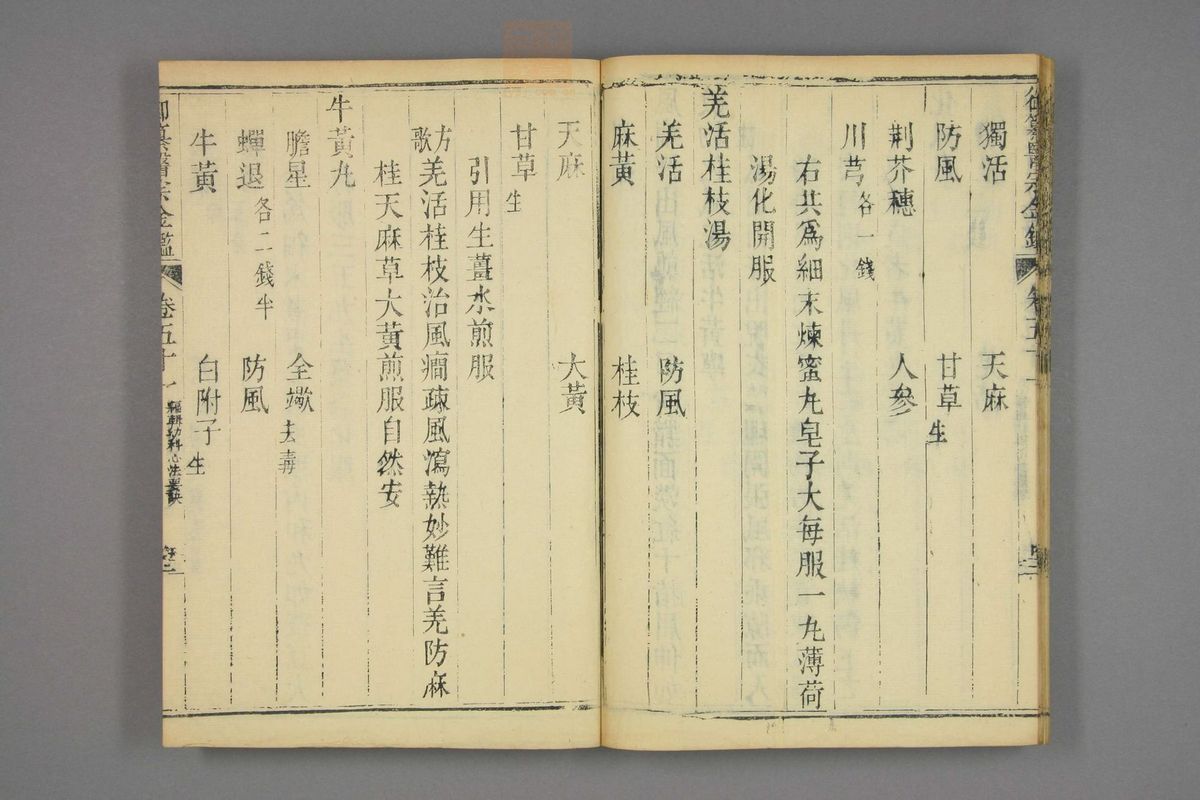 獨活 天麻
防風 甘草生
荆芥穗 人參
川芎各一錢
右共爲細末煉蜜丸皂子大每服一丸薄荷
湯化開服
羌活桂枝湯
羌活 防風
麻黃 桂枝
天麻 大黃
甘草生
引用生薑水煎服
方歌 羌活桂枝治風癇疎風瀉熱妙難言羌防麻
桂天麻草大黃煎服自然安
牛黃丸
膽星 全蠍去毒
蟬退各二錢半 防風
牛黃 白附子生
御纂醫宗金鑑 卷五十一 編輯幼科心法要訣